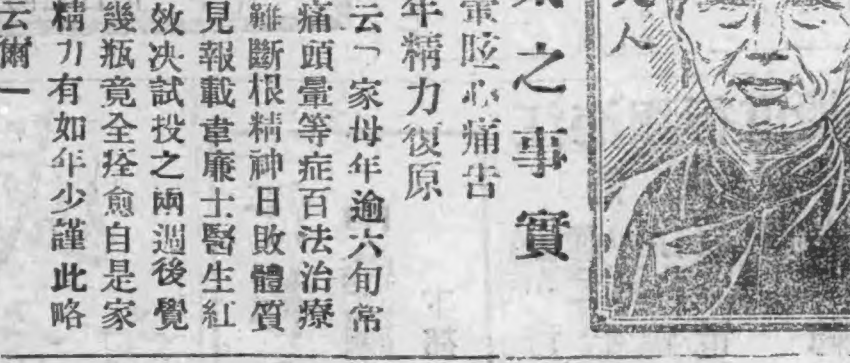 人
之事實
眩心痛告
年精力復原
云「家母年逾六旬常
痛頭暈等症百法治療
難斷根精神日敗體質
見報載韋廉士醫生紅
效决試投之兩週後覺
幾瓶竟全痊愈自是家
精力有如年少謹此略
云爾」